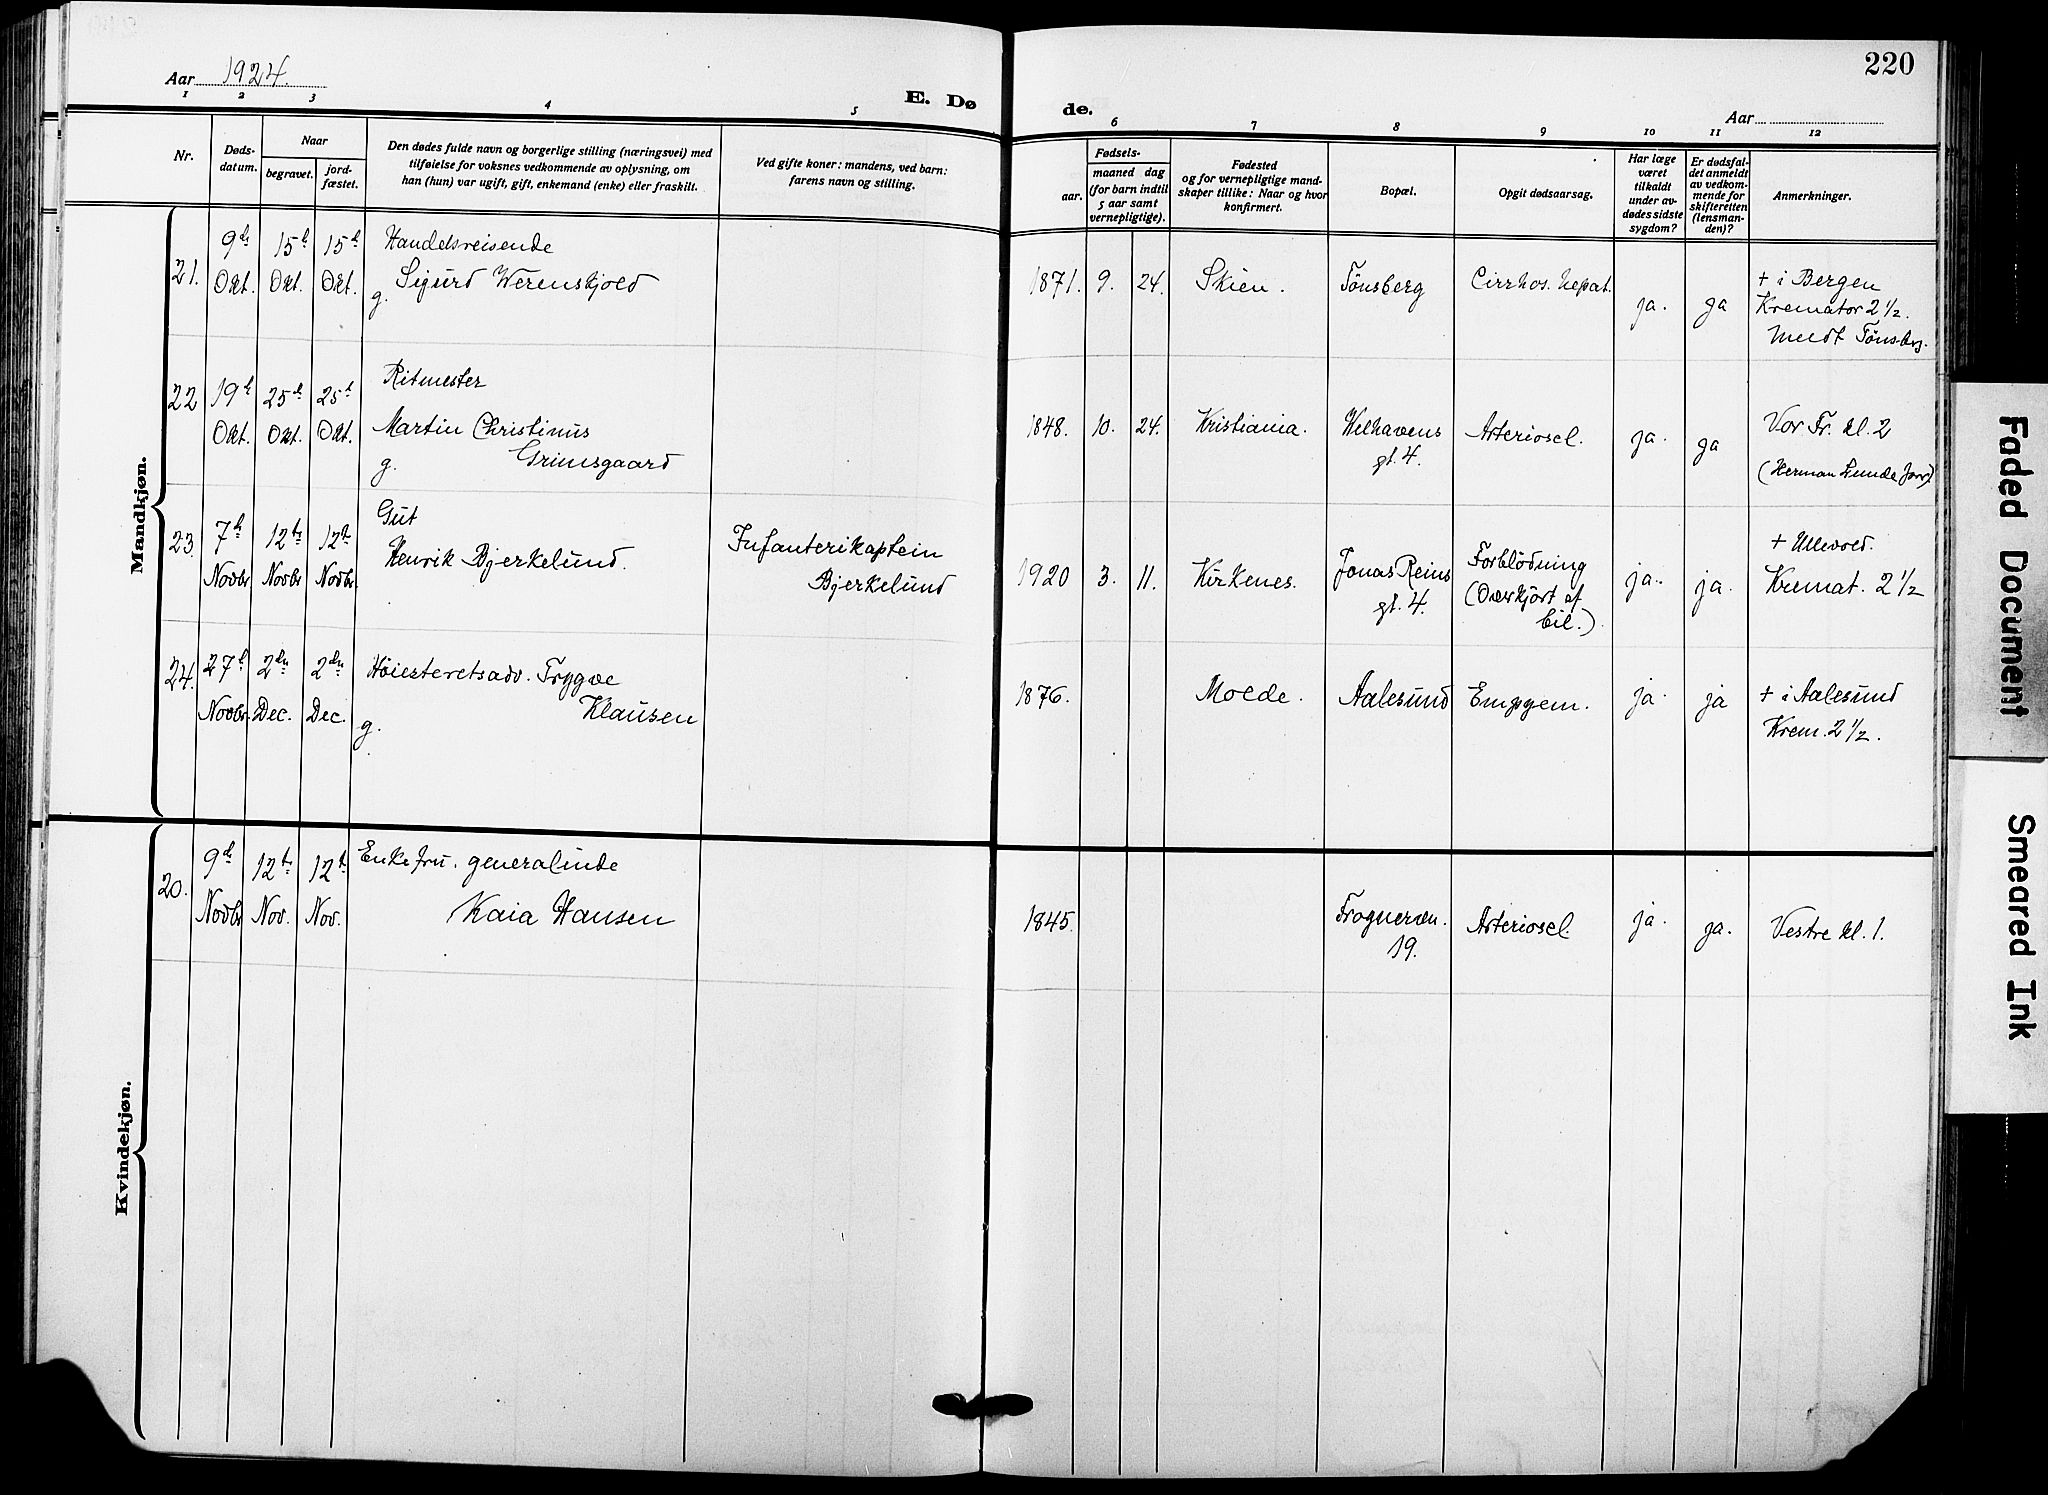 Aar 1924.
E. Dø
de.
220
Aar
1 2 3 4 5 6 7 8 9 10 11 12
Nr.
Døds-
datum.
Naar
begravet.
jord-
fæstet.
Den dødes fulde navn og borgerlige stilling (næringsvei) med
tilføielse for voksnes vedkommende av oplysning, om
han (hun) var ugift, gift, enkemand (enke) eller fraskilt.
Ved gifte koner: mandens, ved barn:
farens navn og stilling.
Fødsels-
aar.
maaned dag
(for barn indtil
5 aar samt
vernepligtige).
Fødested
og for vernepligtige mand-
skaper tillike: Naar og hvor
konfirmert.
Bopæl.
Opgit dødsaarsag.
Har læge
været
tilkaldt
under av-
dødes sidste
sygdom?
Er dødsfal-
det anmeldt
av vedkom-
mende for
skifteretten
(lensman-
den)?
Anmerkninger.
Mandkjøn.
21. 9de Okt. 15de Okt. 15de Okt.
Handelsreisende
g. Sigurd Werenskjold
1871. 9. 24. Skien. Tönsberg Cirrhos. hepat. ja. ja
+ i Bergen
Kremator 2 1/2.
Tönsberg.
22 19de Okt. 25de Okt. 25de Okt.
Ritmester
Martin Christinus
g. Grimsgaard
1848. 10. 24. Kristiania. Welhavens
gt. 4.
Arterioscl. ja. ja
Vor Fr. kl. 2
(Herman Lunde forr.)
23. 7de Novbr 12te Novbr 12te Novbr
Gut
Henrik Bjerkelund.
Infanterikaptein
Bjerkelund
1920 3. 11. Kirkenes. Jonas Reins
gt. 4.
Forblödning
(Overkjört af
bil.)
ja. ja.
+ Ullevold.
Kremat. 2 1/2
24. 27de Novbr. 2den Dec. 2den Dec.
Höiesteretsadv. Trygve
g. Klausen
1876. Molde. Aalesund Empyem. ja. ja
+ i Aalesund
Krem. 2 1/2.
Kvindekjøn.
20. 9de Novbr 12te Nov. 12te Nov.
Enkefru. generalinde
Kaia Hansen
1845. Frognervn.
19.
Arterioscl. ja. ja.
Vestre kl. 1.
Faded Document
Smeared Ink